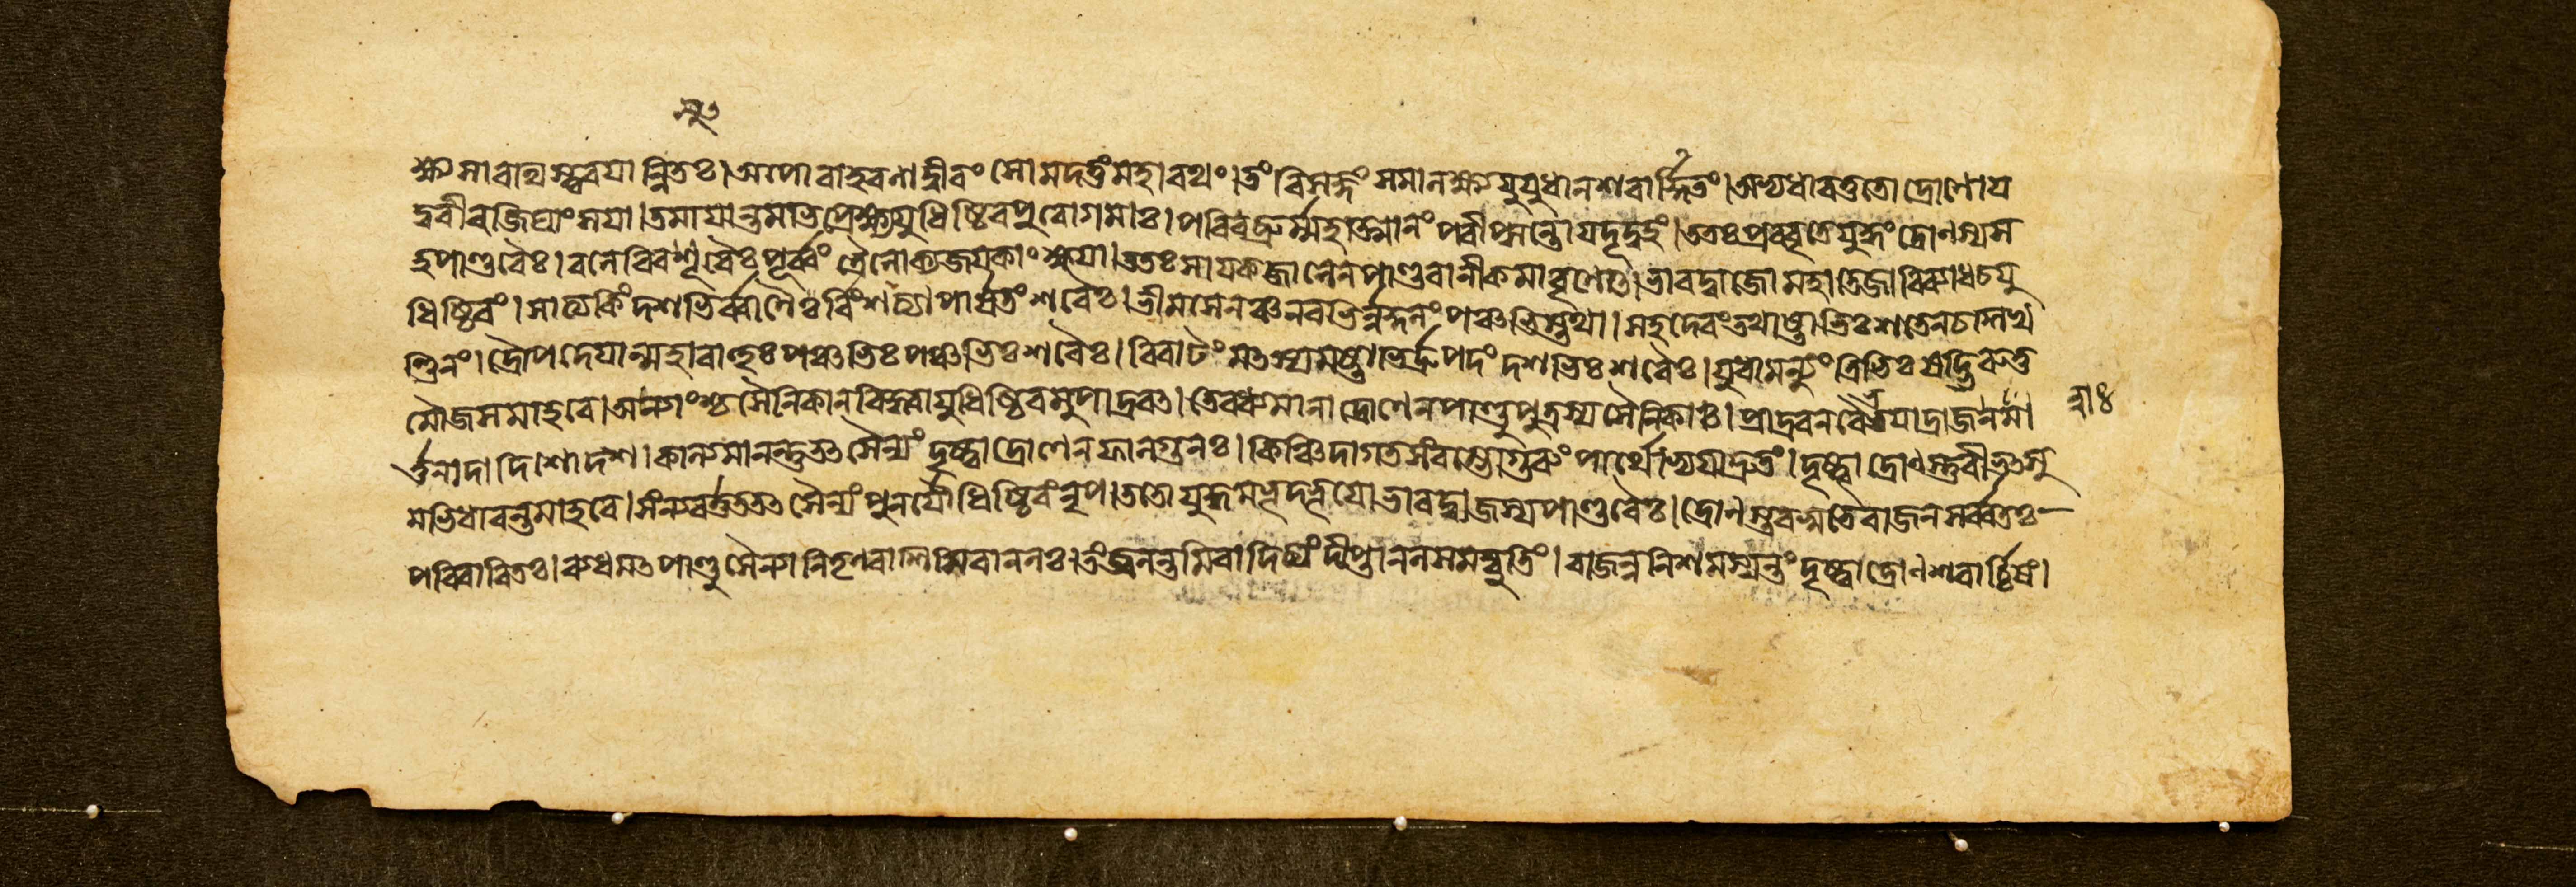 ক্ষ্য সারথিস্ত্বরয়ান্বিতঃ। অপোবাহ রণাদ্বীরং সোমদত্তং মহারথং। তং বিসংজ্ঞং সমালক্ষ্য যুযুধানশরার্দ্দিতং। অভ্যধাবত্ততো দ্রোণো য
দুবীরজিঘাংসয়া। তমায়ান্তমভিপ্রেক্ষ্য যুধিষ্ঠিরপুরোগমাঃ। পরিবব্রুর্ম্মহাত্মানং পরীপ্সন্তো যদূদ্বহং। ততঃ প্রববৃতে যুদ্ধং দ্রোণস্য স
হ পাণ্ডবৈঃ। বলেরিব সুরৈঃ পূর্ব্বং ত্রৈলোক্যজয়কাংক্ষয়া। ততঃ সায়কজালেন পাণ্ডবানীকমাবৃণোৎ। ভারদ্বাজো মহাতেজা বিব্যাধ চ যু
ধিষ্ঠিরং। সাত্যকিং দশভির্ব্বাণৈর্বিংশত্যা পার্ষতং শরৈঃ। ভীমসেনঞ্চ নবভির্নকুলং পঞ্চভিস্তথা। সহদেবং তথাষ্টাভিঃ শতেন চ শিখ
ণ্ডিনং। দ্রৌপদেয়ান্মহাবাহুঃ পঞ্চভিঃ পঞ্চভিঃ শরৈঃ। বিরাটং মৎস্যমষ্টাভির্দ্রুপদং দশভিঃ শরৈঃ। যুধামন্যুং ত্রিভিঃ ষড্ভিরুত্ত
মৌজসমাহবে। অন্যাংশ্চ সৈনিকান্ বিদ্ধ্বা যুধিষ্ঠিরমুপাদ্রবৎ। তে বধ্যমানা দ্রোণেন পাণ্ডুপুত্রস্য সৈনিকাঃ। প্রাদ্রবন বৈ ভয়াদ্রাজন সা
র্ত্তনাদা দিশো দশ। কাল্যমানন্তু তৎ সৈন্যং দৃষ্ট্বা দ্রোণেন ফালগুনঃ। কিঞ্চিদাগতসংরম্ভো গুরুং পার্থোভ্যয়াদ্দ্রুতং। দৃষ্ট্বা দ্রোণস্তু বীভৎসু
মভিধাবন্তমাহবে। সংন্যবর্ত্তত তৎ সৈন্যং পুনর্যৌধিষ্ঠিরং নৃপ। ততো যুদ্ধমভূদ্ভূয়ো ভারদ্বাজস্য পাণ্ডবৈঃ। দ্রোণস্তব সুতৈ রাজন সর্ব্বতঃ
পরিবারিতঃ। ব্যধমৎ পাণ্ডুসৈন্যানি তূলরাশিমিবানলঃ। তং জ্বলন্তমিবাদিত্যং দীপ্তানলসমদ্যুতিং। রাজন্ননিশমত্যন্তং দৃষ্ট্বা দ্রোণং শরার্চ্চিষং।